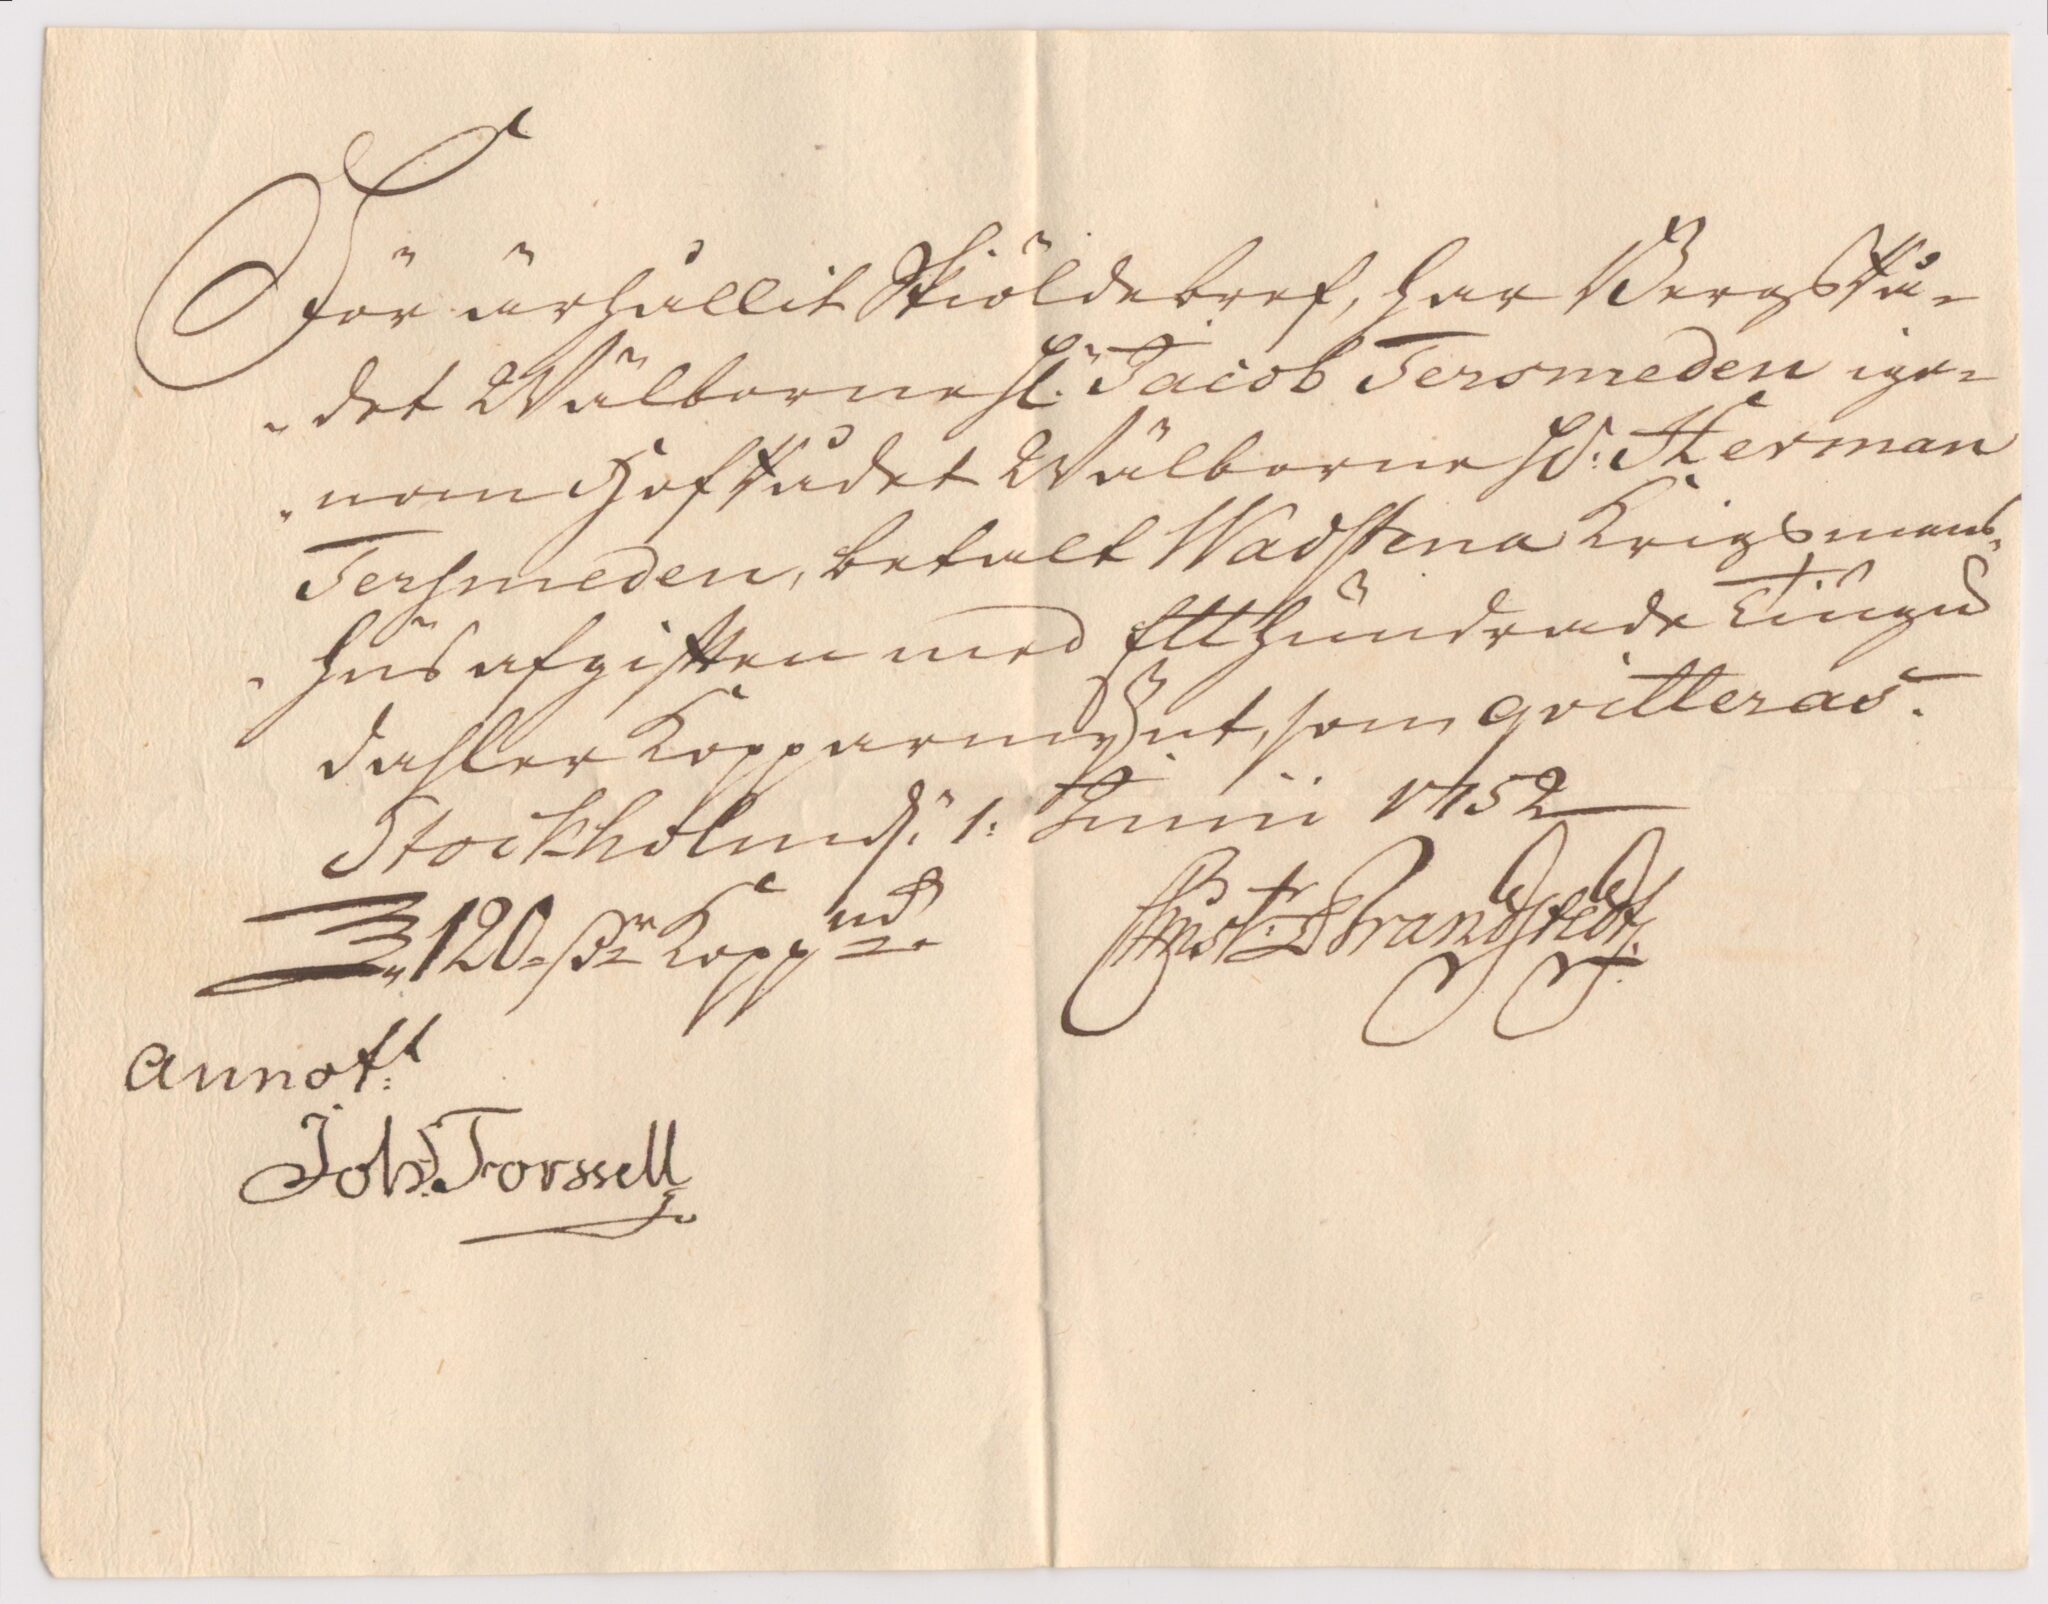 För ärhållit Skiöldebref, har BergsRå-
-det Wälborne H. Jacob Tersmeden ige-
-nom HofRådet Wälborne Hr. Herman
Tersmeden, betalt Wadstena Krigsmans-
-hus afgiften med Ett hundrade Tiugu
dahler Kopparmÿnt, som qvitteras.
Stockholm d. 1. Junii 1752
120 dr Kopp mt
Brandstedt.
Annot.
Joh: Forssell